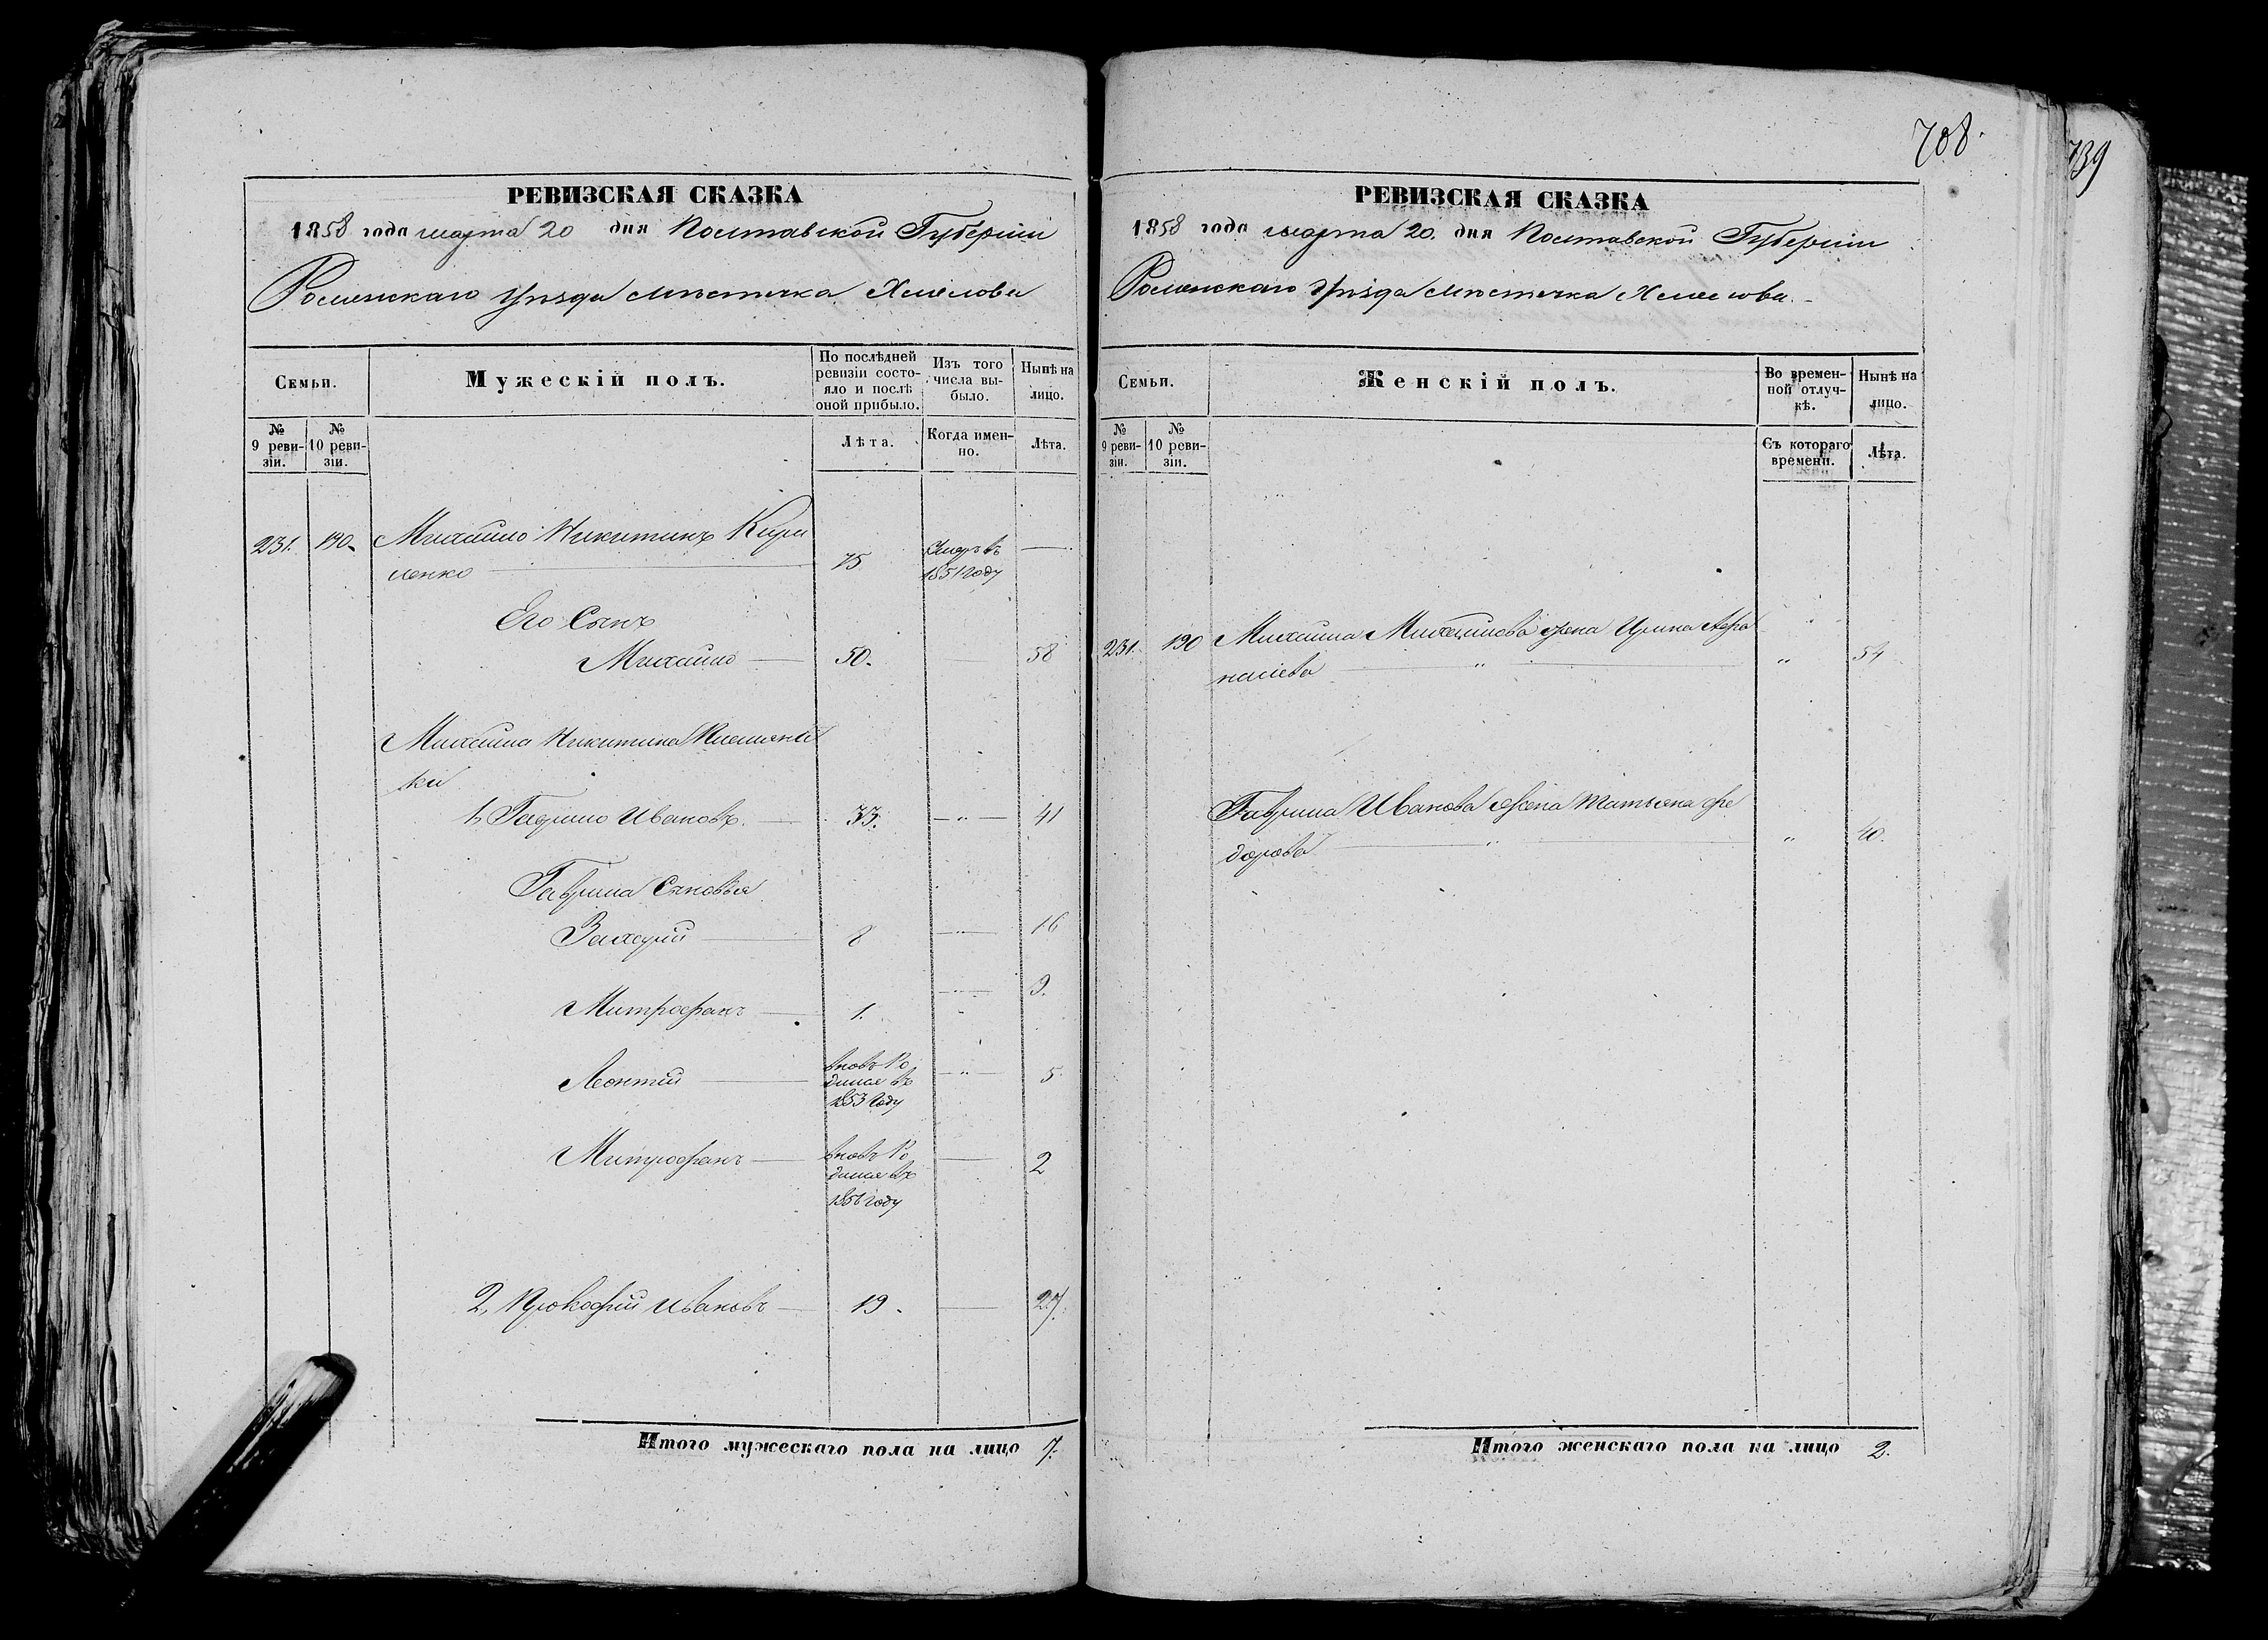 708.
739
РЕВИЗСКАЯ СКАЗКА
1858 года марта 20 дня Полтавской Губернии
Роменскаго Уѣзда Мѣстечка Хмелова
Семьи.
Мужескій полъ.
По послѣдней ревизіи состояло и послѣ оной прибыло.
Изъ того числа выбыло.
Нынѣ на лицо.
№ 9 ревизіи.
№ 10 ревизіи.
Лѣта.
Когда именно.
Лѣта.
231. 190. Михайло Никитинъ Кири
ленко 75 Умеръ въ 1851 году —
Его Сынъ
Михайло — 50. — 58
Михайла Никитина Племянни
ки
1, Гаврило Ивановъ. — 33. — " — 41
Гаврила Сыновья
Захарій — 8 — " — 16
Митрофанъ — 1. — " — 9.
Леонтій — вновь Ро
дился въ
1853 году — " — 5
Митрофанъ — вновь Ро
дился въ
1856 году — 2
2, Прокофій Ивановъ — 19. — 27.
Итого мужескаго пола на лицо 7.
РЕВИЗСКАЯ СКАЗКА
1858 года марта 20. дня Полтавской Губернии
Роменскаго Уѣзда Мѣстечка Хмелова.
Семьи.
Женскій полъ.
Во временной отлучкѣ.
Нынѣ на лицо.
№ 9 ревизіи.
№ 10 ревизіи.
Съ котораго времени.
Лѣта.
231. 190 Михайла Михайлова жена Ирина Афа
насіева — " — " 54
Гаврила Иванова жена Татьяна Фе
дорова — " — " 40.
Итого женскаго пола на лицо 2.